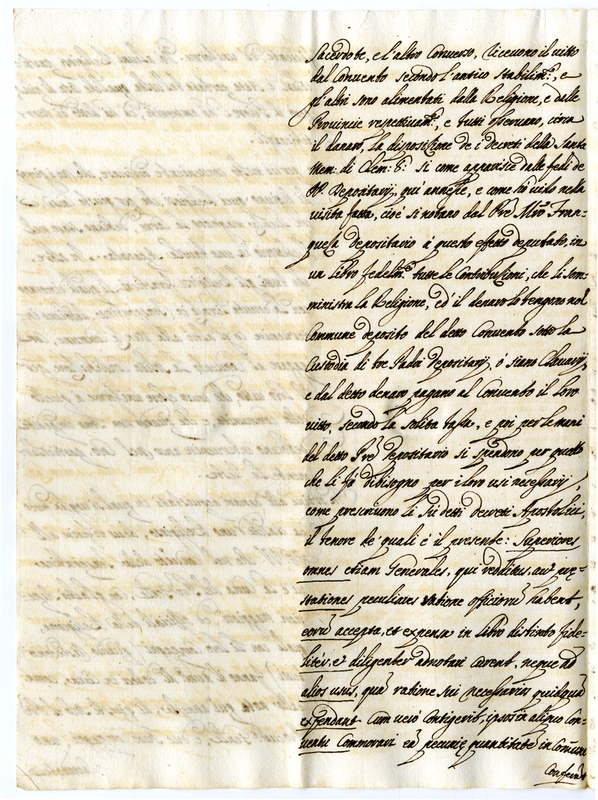 Sacerdote, e l'altro Converso, ricevono il vitto
dal Convento secondo l'antico stabilim.to, e
gl'altri sono alimentati dalla Religione, e dalle
Provincie respettivam.te, e tutti osservano, circa
il danaro, la disposizione de i decreti della Santa
Mem: di Clem: 8.º si come apparisce dalle fedi de
PP. Depositarij, qui annesse, e come hò visto nella
visita fatta, cioè si notano dal Pre Mro Fran=
quesa depositario à questo effetto deputato, in
un libro fedelm.te tutte le Contribuzioni, che li som=
ministra la Religione, ed il denaro lo tengono nel
Commune deposito del detto Convento sotto la
Custodia di tre Padri depositarij, ò siano Clavarij,
e dal detto denaro pagano al Convento il loro
vitto, secondo la solita tassa, e poi per le mani
del detto Pre Depositario si spendono per quello
che li fà di bisogno per i loro usi necessarij,
come prescrivono li sudetti decreti Apostolici,
il tenore de quali è il presente: Superiores
omnes etiam Generales, qui redditus, aut pre=
stationes peculiares ratione officiorũ habent,
eorũ accepta, et expensa in libro distincto fide=
liter, et diligenter adnotari curent, neque ad
alios usus, quã ratione sui necessarios quidquã
expendant. Cum verò Contigerit, ipsos in aliquo Con=
ventu Commorari eã pecunie quantitatẽ in Comuni